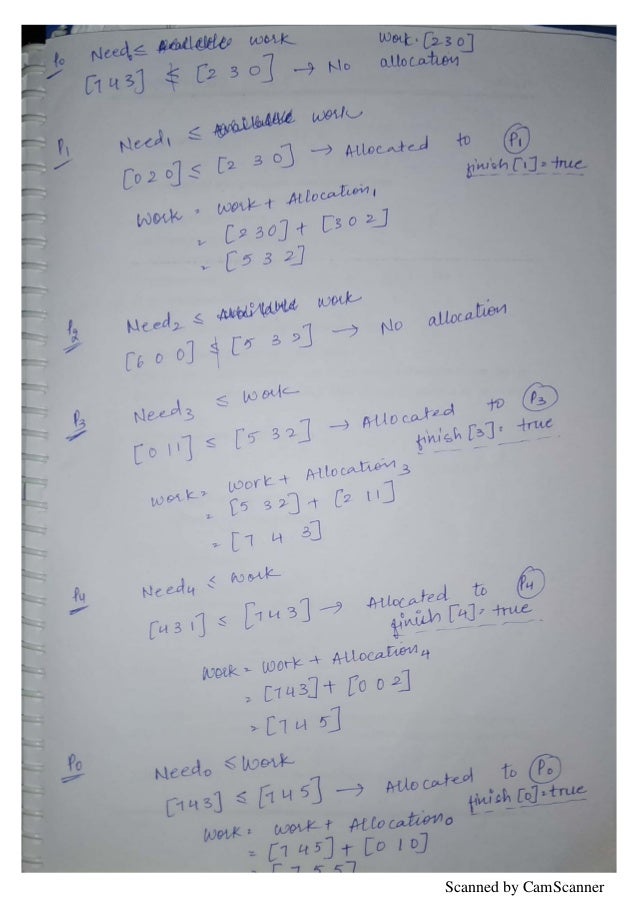 P0 Need0 ≤ work Work = [2 3 0]
[7 4 3] ≰ [2 3 0] → No allocation
P1 Need1 ≤ work
[0 2 0] ≤ [2 3 0] → Allocated to P1
finish [1] = true
Work = work + Allocation1
= [2 3 0] + [3 0 2]
= [5 3 2]
P2 Need2 ≤ work
[6 0 0] ≰ [5 3 2] → No allocation
P3 Need3 ≤ work
[0 1 1] ≤ [5 3 2] → Allocated to P3
finish [3] = true
work = work + Allocation3
= [5 3 2] + [2 1 1]
= [7 4 3]
P4 Need4 ≤ work
[4 3 1] ≤ [7 4 3] → Allocated to P4
finish [4] = true
work = work + Allocation4
= [7 4 3] + [0 0 2]
= [7 4 5]
P0 Need0 ≤ work
[7 4 3] ≤ [7 4 5] → Allocated to P0
finish [0] = true
work = work + Allocation0
= [7 4 5] + [0 1 0]
= [7 5 5]
Scanned by CamScanner